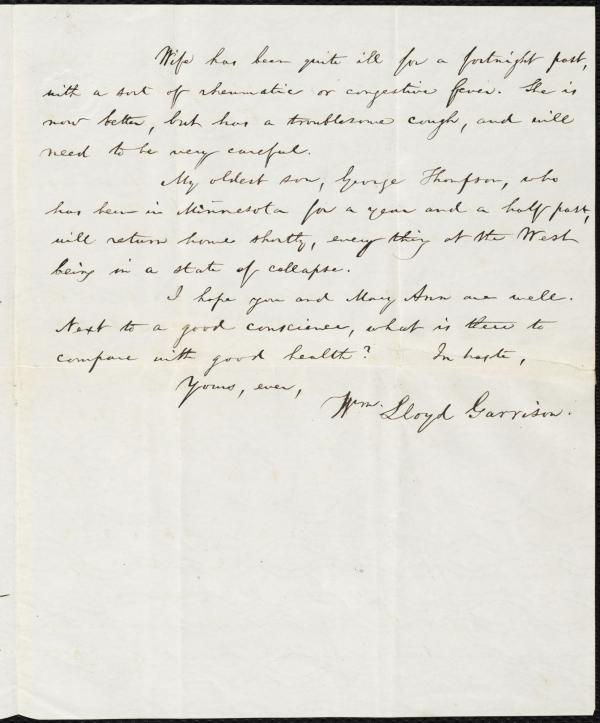 Wife has been quite ill for a fortnight past,
with a sort of rheumatic or congestive fever. She is
now better, but has a troublesome cough, and will
need to be very careful.
My oldest son, George Thompson, who
has been in Minnesota for a year and a half past,
will return home shortly, every thing at the West
being in a state of collapse.
I hope you and Mary Ann are well.
Next to a good conscience, what is there to
compare with good health? In haste,
Yours, ever,
Wm. Lloyd Garrison.